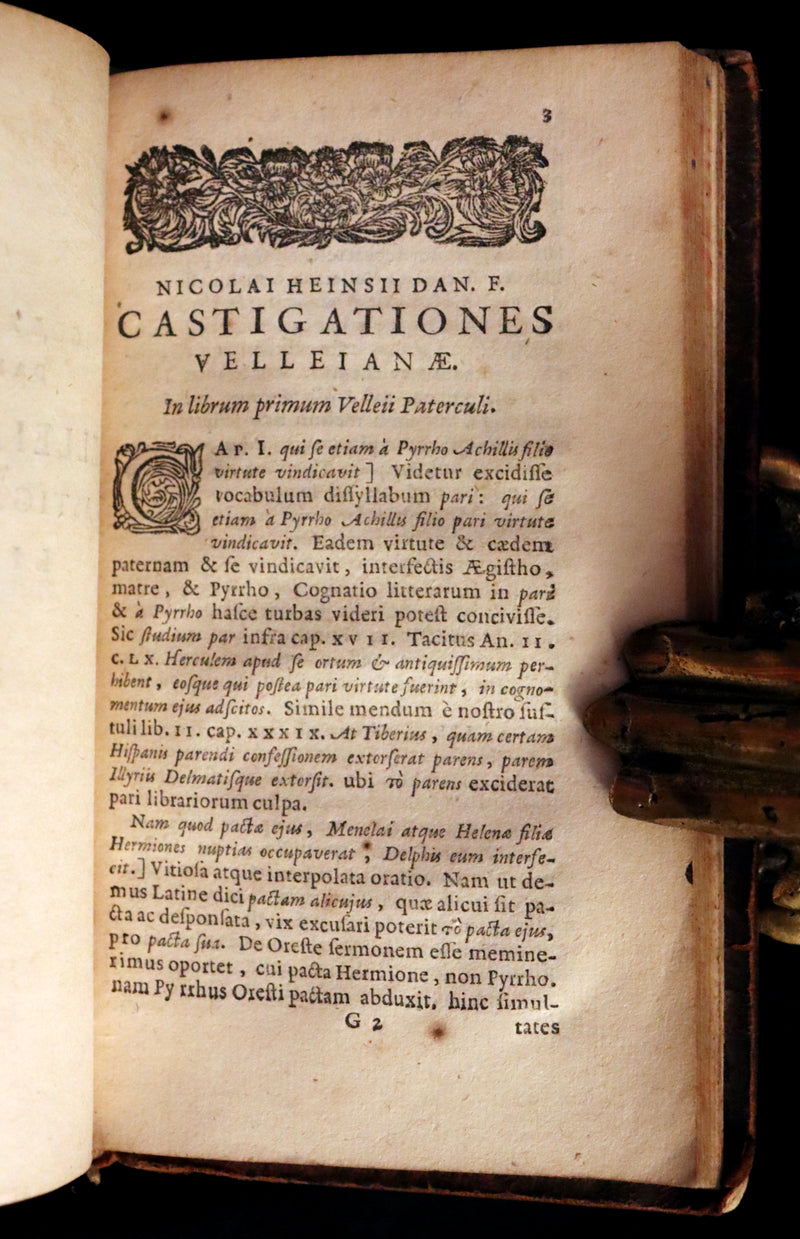 3
NICOLAI HEINSII DAN. F.
CASTIGATIONES
VELLEIANÆ.
In librum primum Velleii Paterculi.
CAP. I. qui ſe etiam à Pyrrho Achillis filio
virtute vindicavit ] Videtur excidiſſe
vocabulum diſſyllabum pari : qui ſe
etiam à Pyrrho Achillis filio pari virtute
vindicavit. Eadem virtute & cædem
paternam & ſe vindicavit, interfectis Ægiſtho,
matre, & Pyrrho, Cognatio litterarum in pari
& à Pyrrho haſce turbas videri poteſt conciviſſe.
Sic ſtudium par infra cap. XVII. Tacitus An. II.
C. LX. Herculem apud ſe ortum & antiquiſſimum per-
hibent, eoſque qui poſtea pari virtute fuerint, in cogno-
mentum ejus adſcitos. Simile mendum è noſtro ſuſ-
tuli lib. II. cap. XXXIX. At Tiberius, quam certam
Hiſpanis parendi confeſſionem extorſerat parens, parem
Illyriis Delmatiſque extorſit. ubi τὸ parens exciderat
pari librariorum culpa.
Nam quod pacta ejus, Menelai atque Helenæ filiæ
Hermiones nuptias occupaverat, Delphis eum interfe-
cit.] Vitioſa atque interpolata oratio. Nam ut de-
mus Latine dici pactam alicujus, quæ alicui ſit pa-
cta ac deſponſata, vix excuſari poterit τὸ pacta ejus,
pro pacta ſua. De Oreſte ſermonem eſſe memine-
rimus oportet, cui pacta Hermione, non Pyrrho.
nam Pyrrhus Oreſti pactam abduxit, hinc ſimul-
G 2 tates